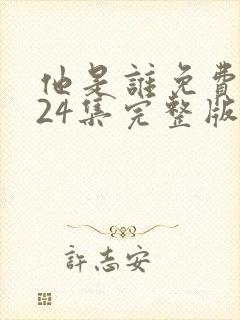 他是誰免費
24集完整版
許志安